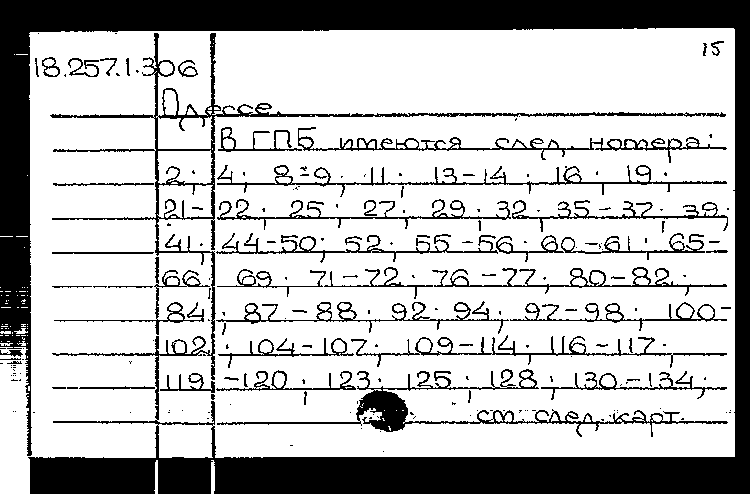 15
18.257.1.306
Одессе.
В ГПБ имеются след. номера:
2; 4; 8-9; 11; 13-14; 16; 19;
21-22; 25; 27; 29; 32; 35-37; 39;
41; 44-50; 52; 55-56; 60-61; 65-
66; 69; 71-72; 76-77; 80-82;
84; 87-88; 92; 94; 97-98; 100-
102; 104-107; 109-114; 116-117;
119-120; 123; 125; 128; 130-134;
см. след. карт.